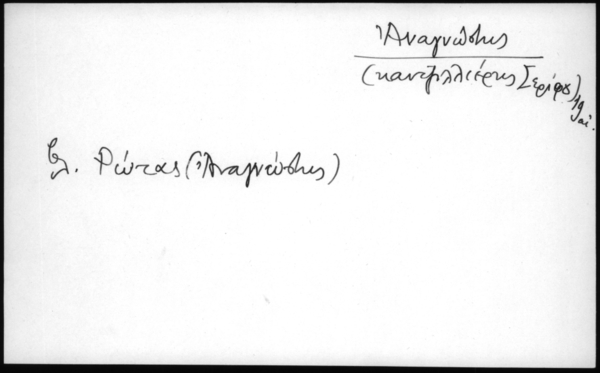 Ἀναγνώστης
(καντζιλλιέρης Σερίφου) 19 αἰ.
βλ. Ρώτας (Ἀναγνώστης)